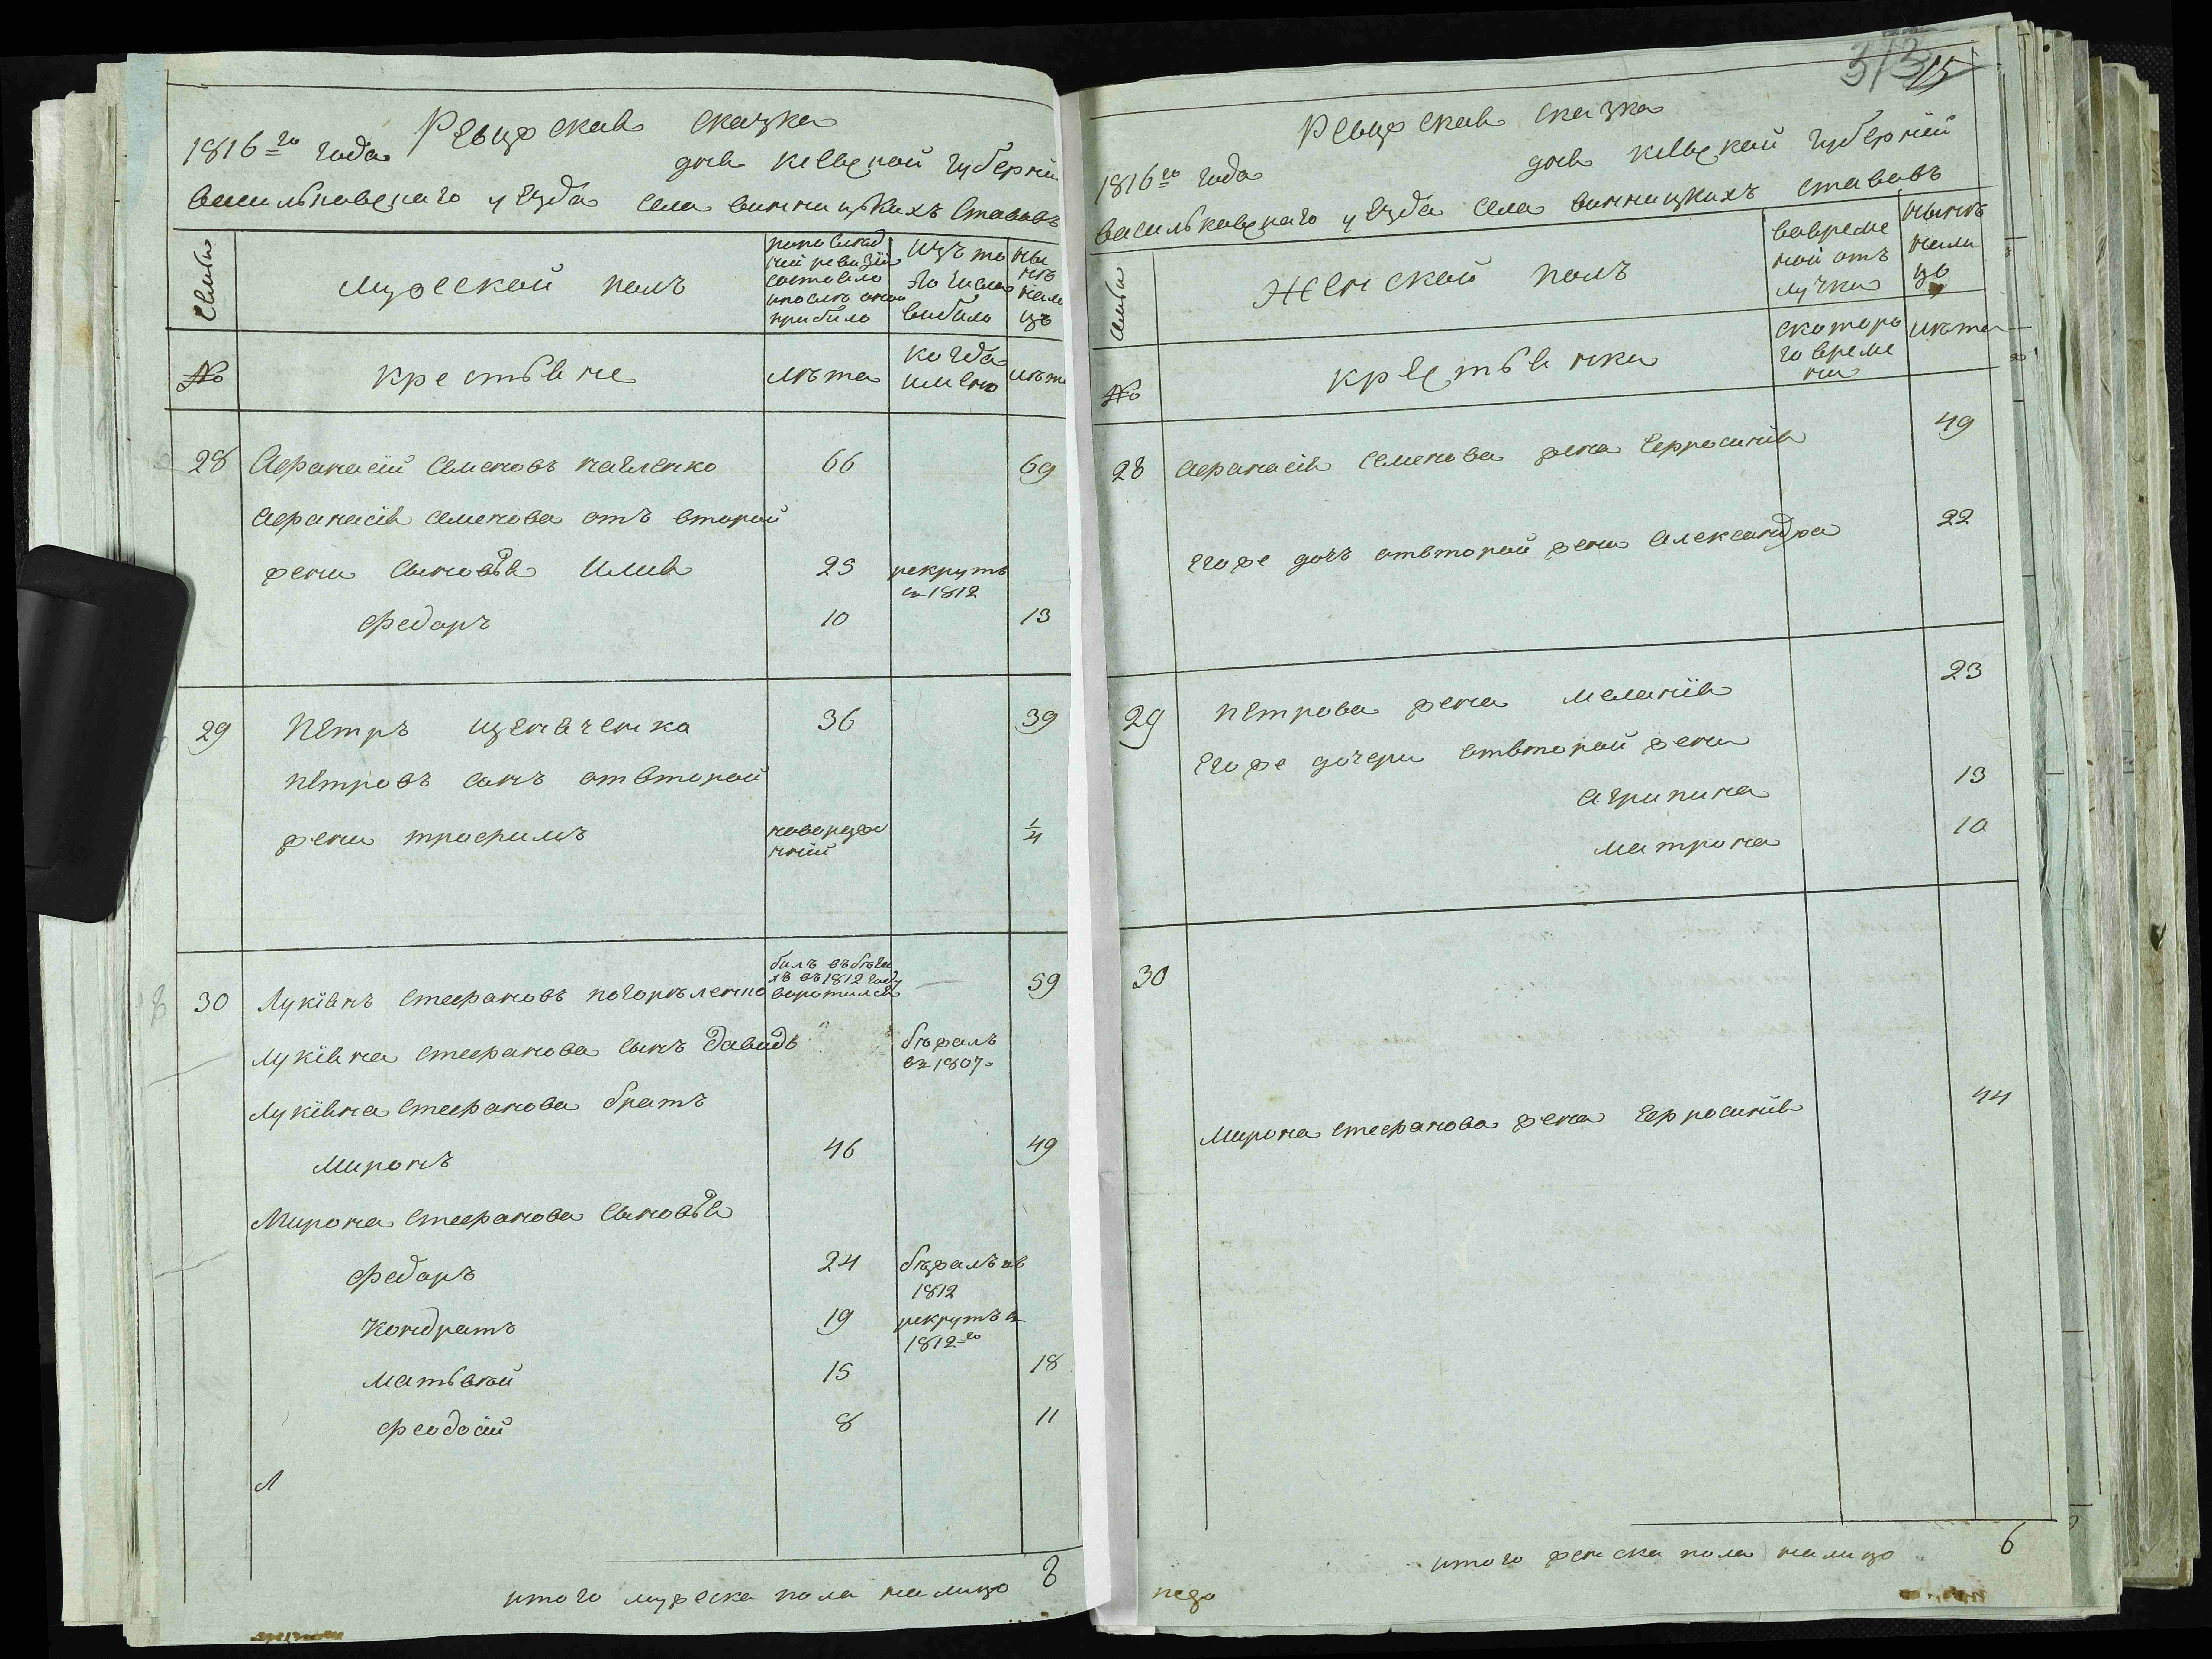 Ревизская сказка
1816го года дня киевской губернии
васильковскаго уезда села винницкихъ ставовъ
Семьи
Мужеской полъ
по последней ревизіи состояло и после оной прибыло
Изъ того числа выбыло
ныне налицо
№
крестьяне
лѣта
когда имянно
лѣта
28 Афанасій Семеновъ павленко 66 69
Афанасія Семенова отъ второй
жены сыновья Илия 25 рекрутъ
въ 1812
Федоръ 10 13
29 Петръ щеняченко 36 39
Петровъ сынъ отвторой
жены трофимъ новорожденній 1/4
30 Лукіянъ Стефановъ погорѣленко 59
билъ въ бѣгахъ въ 1812 году воротился
Лукіяна Стефанова сынъ Давидъ бѣжалъ
въ 1807
Лукіяна Стефанова братъ
Миронъ 46 49
Мирона Стефанова сыновья
Федоръ 24 бѣжалъ въ
1812
Кондратъ 19 рекрутъ в
1812го
Матвѣй 15 18
Феодосій 8 11
Л
итого мужеска пола налицо 8
373
15
Ревизская сказка
1816го года дня киевской губерніи
васильковскаго уезда села винницкихъ ставовъ
Семьи
Женской полъ
вовременной отлучки
ныне налицо
№
крестьянки
скоторого времени
лѣта
28 Афанасія Семенова жена Ефросинія 49
Его же дочъ отвторой жены Александра 22
29 Петрова жена Меланія 23
Его же дочери отвторой жены
Агрипина 13
Матрона 10
30
Мирона Стефанова жена Ефросинія 44
итого женска пола налицо 6